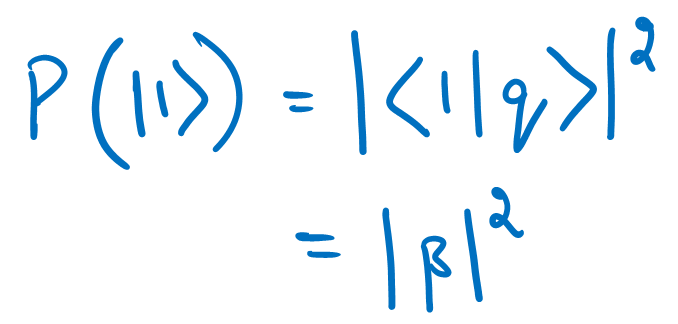 P(|1⟩) = |⟨1|q⟩|²
= |β|²